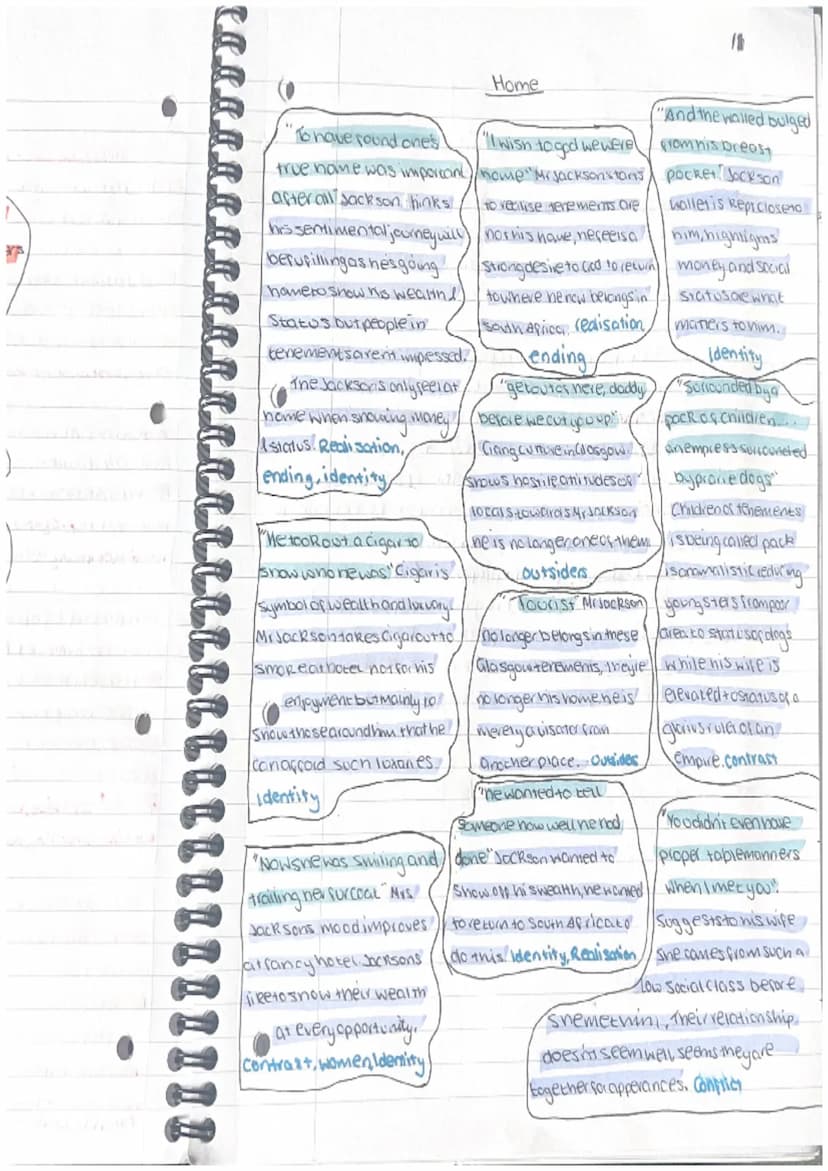 Home
"To have found one's
true name was important
after all" Jackson thinks
his sentimental journey will
be fufilling as he's going
home to show his wealth &
status but people in
tenements arent impressed.
The Jacksons only feel at
home when showing money
& status. Realisation,
ending, identity
"He took out a cigar to
show who he was" Cigar is
symbol of wealth and luxury
Mr Jackson takes cigar out to
smoke at hotel not for his
enjoyment but mainly to
show those around him that he
can afford such luxaries.
Identity
"Now she was smiling and
trailing her fur coat" Mrs
Jacksons mood improves
at fancy hotel. Jacksons
like to show their wealth
at every opportunity.
contrast, women, Identity
"I wish to god we were
home" Mr Jackson starts
to realise tenements are
not his home, he feels a
strong desire to God to return
to where he now belongs in
South Africa. realisation
ending
"get out of here, daddy
before we cut you up"
Gang culture in Glasgow
shows hostile attitudes of
locals towards Mr Jackson
he is no longer one of them
outsiders
"Tourist" Mr Jackson
no longer belongs in these
Glasgow tenements, they're
no longer his home he is
merely a visator from
another place. Outsides
"he wanted to tell
someone how well he had
done" Jackson wanted to
show off his wealth, he wanted
to return to South Africa to
do this. Identity, Realisation
"And the walled bulged
from his breast
pocket" Jackson
wallet is kept close to
him, highlights
money and social
status are what
matters to him.
Identity
"Surrounded by a
pack of children...
an empress surrounded
by prairie dogs"
Children of tenements
is being called pack
is animalistic reducing
youngsters from poor
area to status of dogs
while his wife is
elevated to status of a
ruler of an
empire. contrast
"You didn't even have
proper table manners
when I met you".
Suggests to his wife
she comes from such a
low social class before
she met him, Their relationship
doesn't seem well, seems they are
together for apperances. Conflict